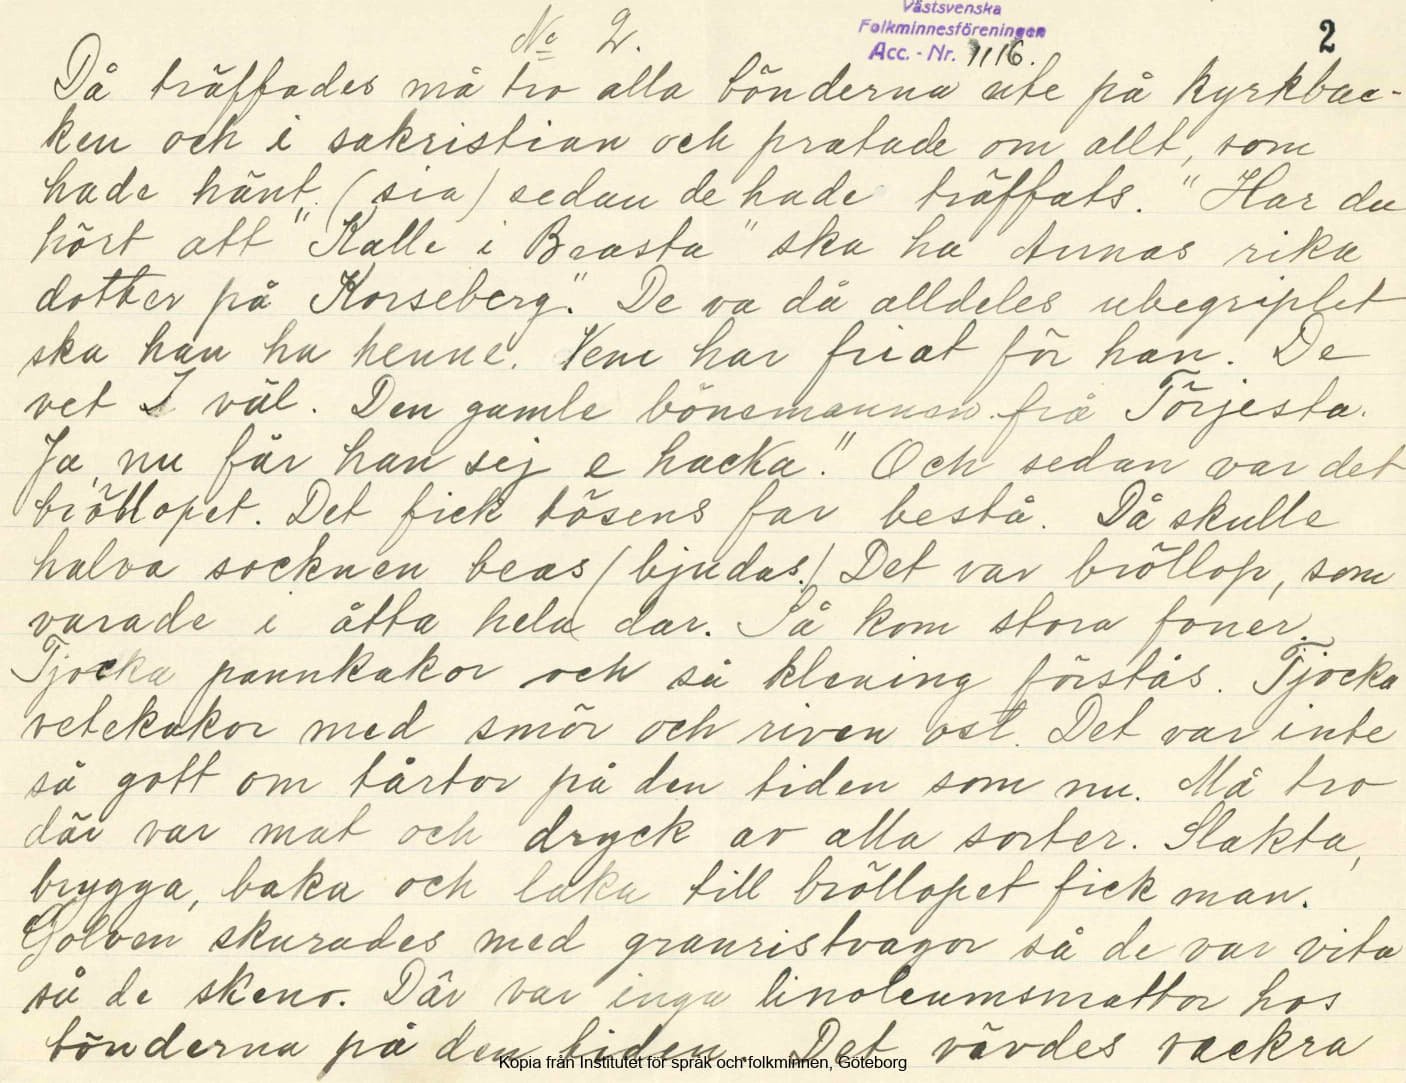 No 2.
Västsvenska
Folkminnesföreningen
Acc. - Nr. 1116.
2
Då träffades må tro alla bönderna ute på kyrkbac-
ken och i sakristian och pratade om allt, som
hade hänt (sia) sedan de hade träffats. "Har du
hört att "Kalle i Brasta" ska ha Annas rika
dotter på Korseberg." De va då alldeles ubegriplet
ska han ha henne. Vem har friat för han. De
vet I väl. Den gamle bönemannen frå Törjesta.
Ja, nu får han sej e hacka." Och sedan var det
bröllopet. Det fick tösens far bestå. Då skulle
halva socknen beas (bjudas.) Det var bröllop, som
varade i åtta hela dar. Så kom stora foner.
Tjocka pannkakor och så klening förstås. Tjocka
vetekakor med smör och riven ost. Det var inte
så gott om tårtor på den tiden som nu. Må tro
där var mat och dryck av alla sorter. Slakta,
brygga, baka och laka till bröllopet fick man.
Golven skurades med granristvagor så de var vita
så de skeno. Där var inga linoleumsmattor hos
bönderna på den tiden. Det vävdes vackra
Kopia från Institutet för språk och folkminnen, Göteborg